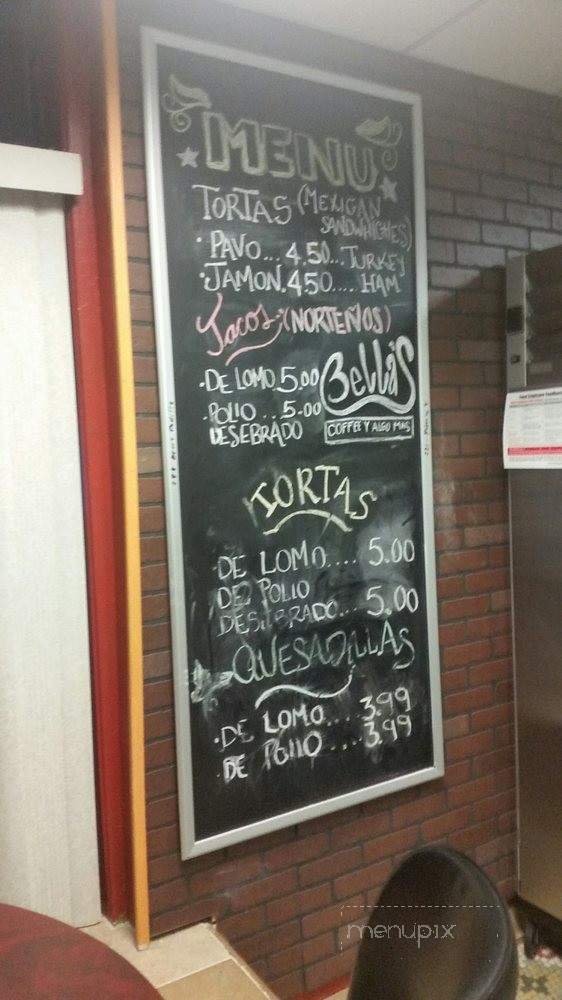 MENU
TORTAS (MEXICAN SANDWHICHES)
• PAVO... 4.50... TURKEY
• JAMON. 4.50..... HAM
Tacos: (NORTEÑOS)
• DE LOMO 5.00
• POLLO .. 5.00
DESEBRADO
Bella's
COFFEE Y ALGO MAS
TORTAS
• DE LOMO.... 5.00
DE POLLO
DESEBRADO... 5.00
QUESADILLAS
• DE LOMO.... 3.99
• DE POLLO .... 3.99
menupix